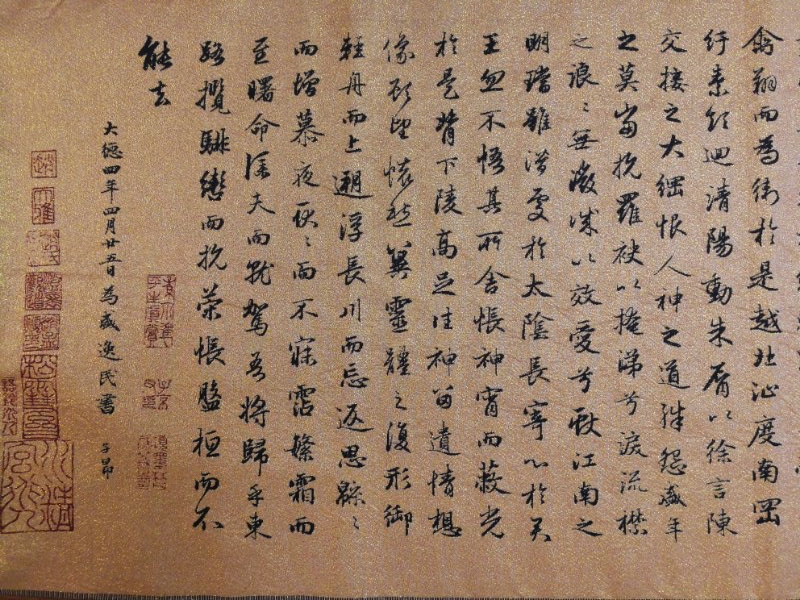 禽翔而為衛於是越北沚度南岡
紆素領迴清陽動朱脣以徐言陳
交接之大綱恨人神之道殊怨盛年
之莫當抗羅袂以掩涕兮淚流襟
之浪〻無微誠以效愛兮獻江南之
明璫雖潛處於太陰長寄心於君
王忽不悟其所舍悵神宵而蔽光
於是背下陵高足往神留遺情想
像顧望懷愁冀靈體之復形御
輕舟而上遡浮長川而忘返思緜〻
而增慕夜耿〻而不寐霑繁霜而
至曙命僕夫而就駕吾將歸乎東
路攬騑轡而抗策悵盤桓而不
能去
大德四年四月廿五日為盛逸民書 子昂